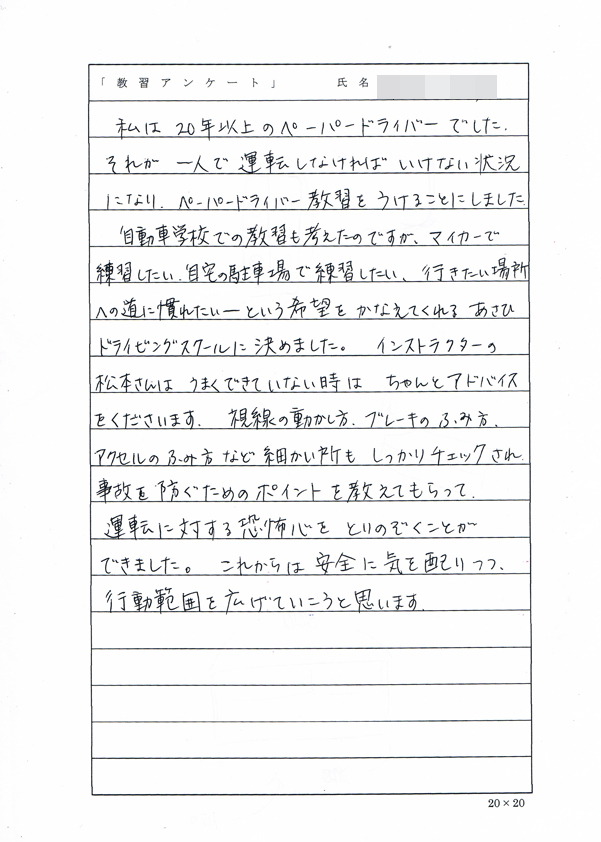 「教習アンケート」　氏名
私は20年以上のペーパードライバーでした.
それが一人で運転しなければいけない状況
になり、ペーパードライバー教習をうけることにしました.
自動車学校での教習も考えたのですが、マイカーで
練習したい、自宅の駐車場で練習したい、行きたい場所
への道に慣れたい―という希望をかなえてくれるあさひ
ドライビングスクールに決めました。インストラクターの
松本さんはうまくできていない時はちゃんとアドバイス
をくださいます. 視線の動かし方、ブレーキのふみ方、
アクセルのふみ方など細かい所もしっかりチェックされ
事故を防ぐためのポイントを教えてもらって、
運転に対する恐怖心をとりのぞくことが
できました。これからは安全に気を配りつつ、
行動範囲を広げていこうと思います.
20×20